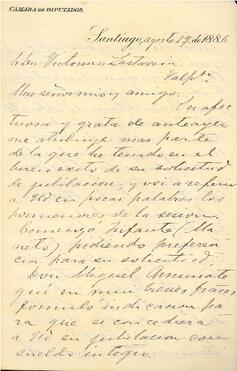 CÁMARA DE DIPUTADOS.
Santiago, agosto 19 de 1886
Señor Victorino Lastarria
Valpso
Mui señor mio y amigo:
Su afec
tuosa y grata de anteayer
me atribuye mas parte
de la que he tenido en el
buen éxito de su solicitud
de jubilacion, y voi a referir
a Ud en pocas palabras los
pormenores de la sesion.
Comenzó Infante (Ma
nuel) pidiendo preferen
cia para su solicitud.
Don Miguel Amunáte
gui en mui breves frases
formuló indicacion pa
ra que se concediera
a Ud su jubilacion con
sueldo íntegro.